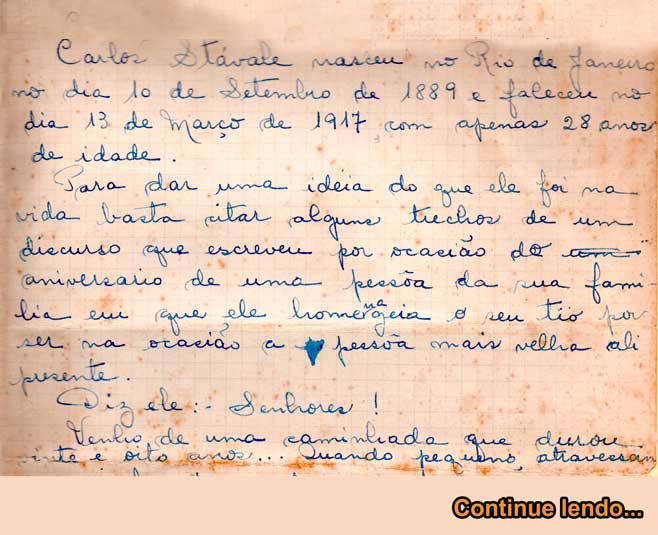 Carlos Stávale nasceu no Rio de Janeiro
no dia 10 de Setembro de 1889 e faleceu no
dia 13 de Março de 1917, com apenas 28 anos
de idade.
Para dar uma ideia do que ele foi na
vida basta citar alguns trechos de um
discurso que escreveu por ocasião do um
aniversario de uma pessôa da sua fami-
lia em que ele homenageia o seu tio por
ser na ocasião a pessôa mais velha ali
presente.
Diz ele:- Senhores!
Venho de uma caminhada que durou
vinte e oito anos... Quando pequeno, atravessan
Continue lendo...